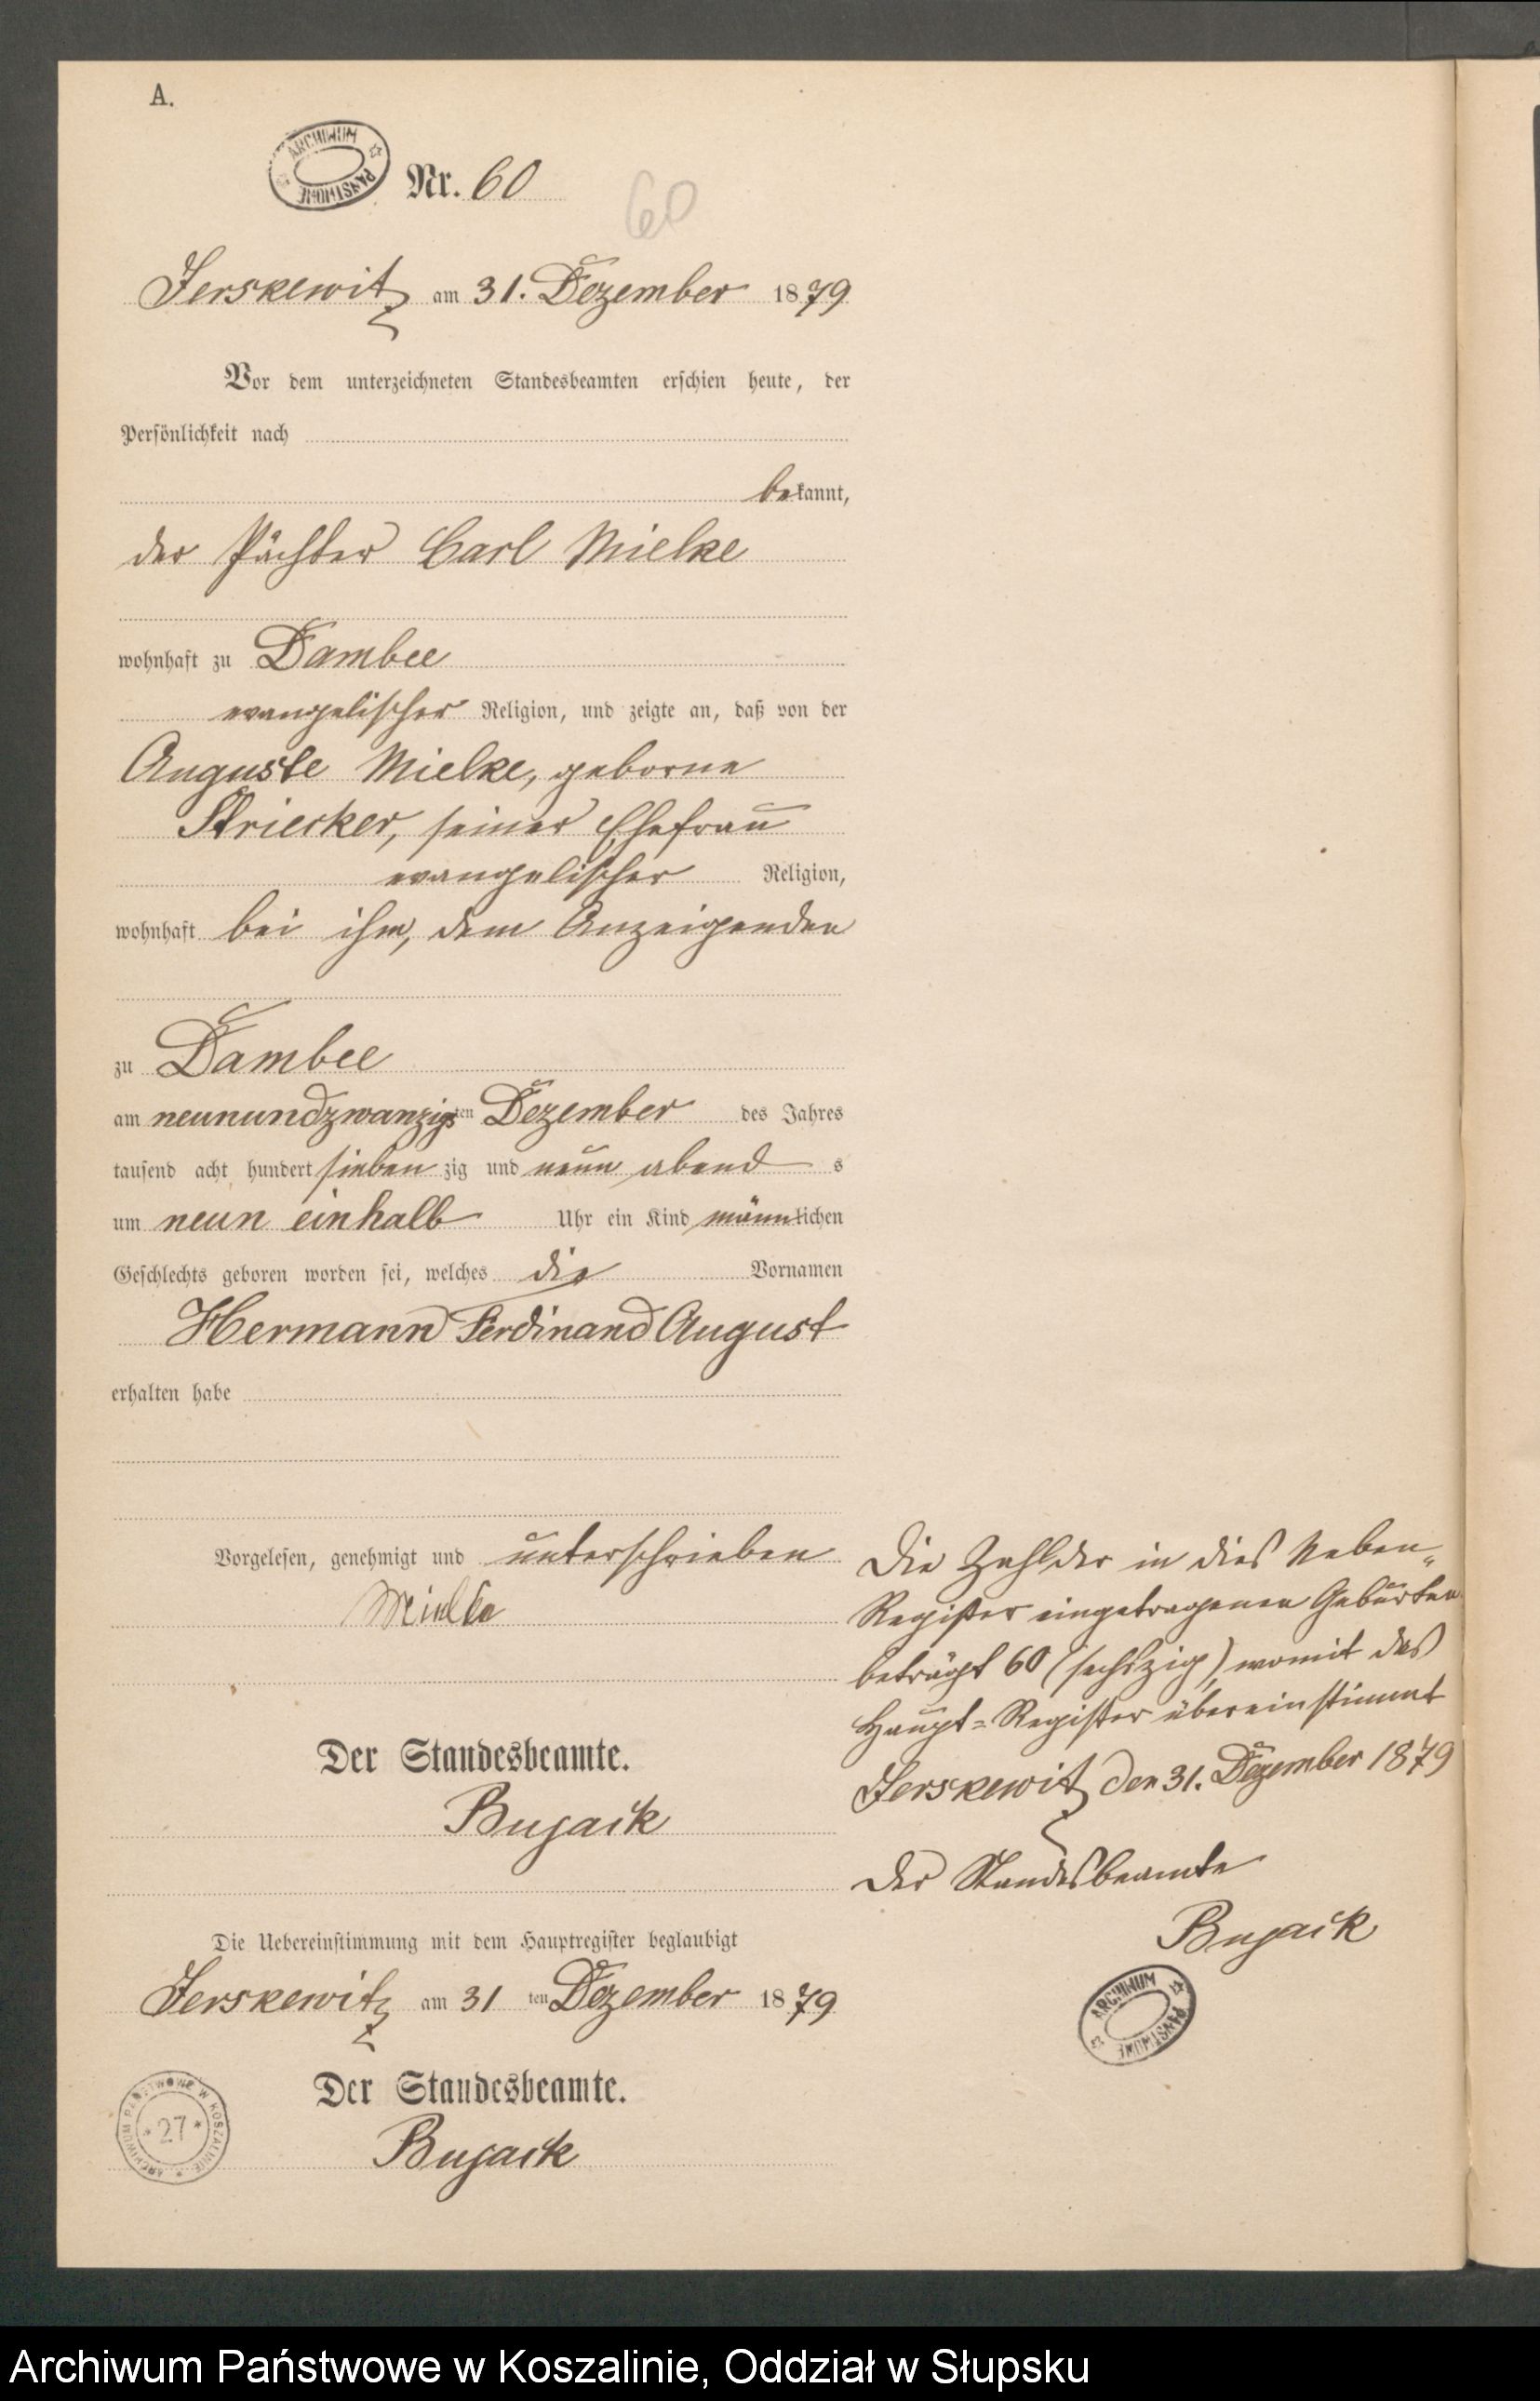 A.
ARCHIWUM PAŃSTWOWE
Nr. 60
60
Jerskewitz am 31. Dezember 1879
Vor dem unterzeichneten Standesbeamten erschien heute, der
Persönlichkeit nach
bekannt,
der Pächter Carl Mielke
wohnhaft zu Dambee
evangelischer Religion, und zeigte an, daß von der
Auguste Mielke, geborne
Striecker, seiner Ehefrau
evangelischer Religion,
wohnhaft bei ihm, dem Anzeigenden
zu Dambee
am neunundzwanzigsten Dezember des Jahres
tausend acht hundert siebenzig und neun abends
um neun einhalb Uhr ein Kind männlichen
Geschlechts geboren worden sei, welches die Vornamen
Hermann Ferdinand August
erhalten habe
Vorgelesen, genehmigt und unterschrieben
Mielke
Der Standesbeamte.
Bujack
Die Uebereinstimmung mit dem Hauptregister beglaubigt
Jerskewitz am 31 ten Dezember 1879
Der Standesbeamte.
Bujack
ARCHIWUM PAŃSTWOWE W KOSZALINIE
* 27 *
Die Zahl der in dies Neben-
Register eingetragenen Geburten
beträgt 60 (sechszig), womit das
Haupt-Register übereinstimmt
Jerskewitz den 31. Dezember 1879
Der Standesbeamte
Bujack
ARCHIWUM PAŃSTWOWE
Archiwum Państwowe w Koszalinie, Oddział w Słupsku